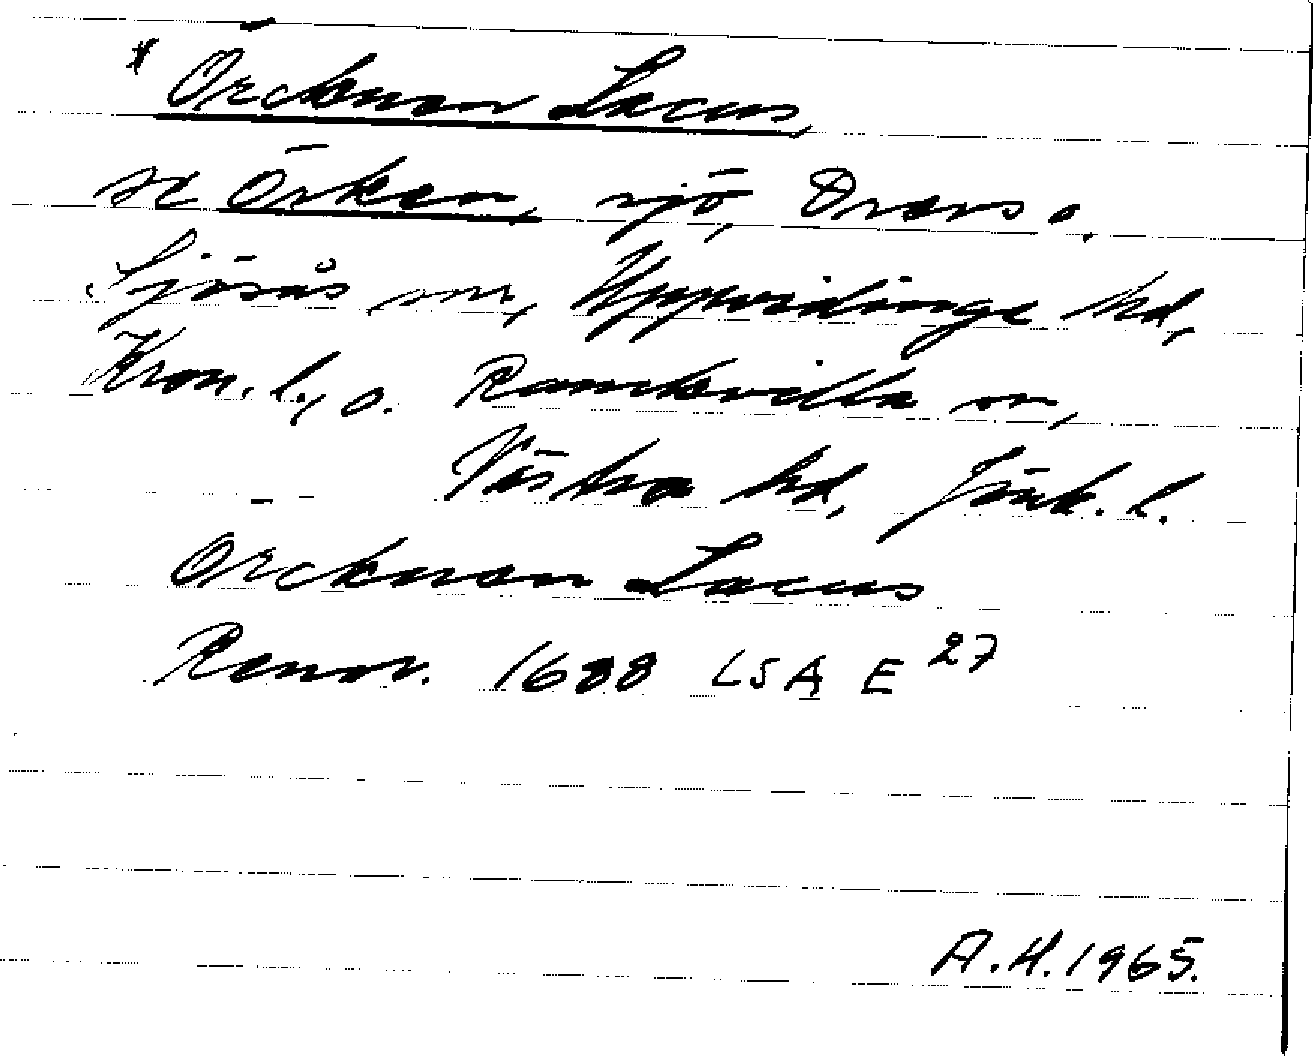 * Örcknan Lacus,
se Örken, sjö, Drevs o.
Sjösås snr, Uppvidinge hd,
Kron. l., o. Ramkvilla sn,
Västra hd, Jönk. l.
Örcknan Lacus
Renov. 1688 LSA E 27
A.H. 1965.